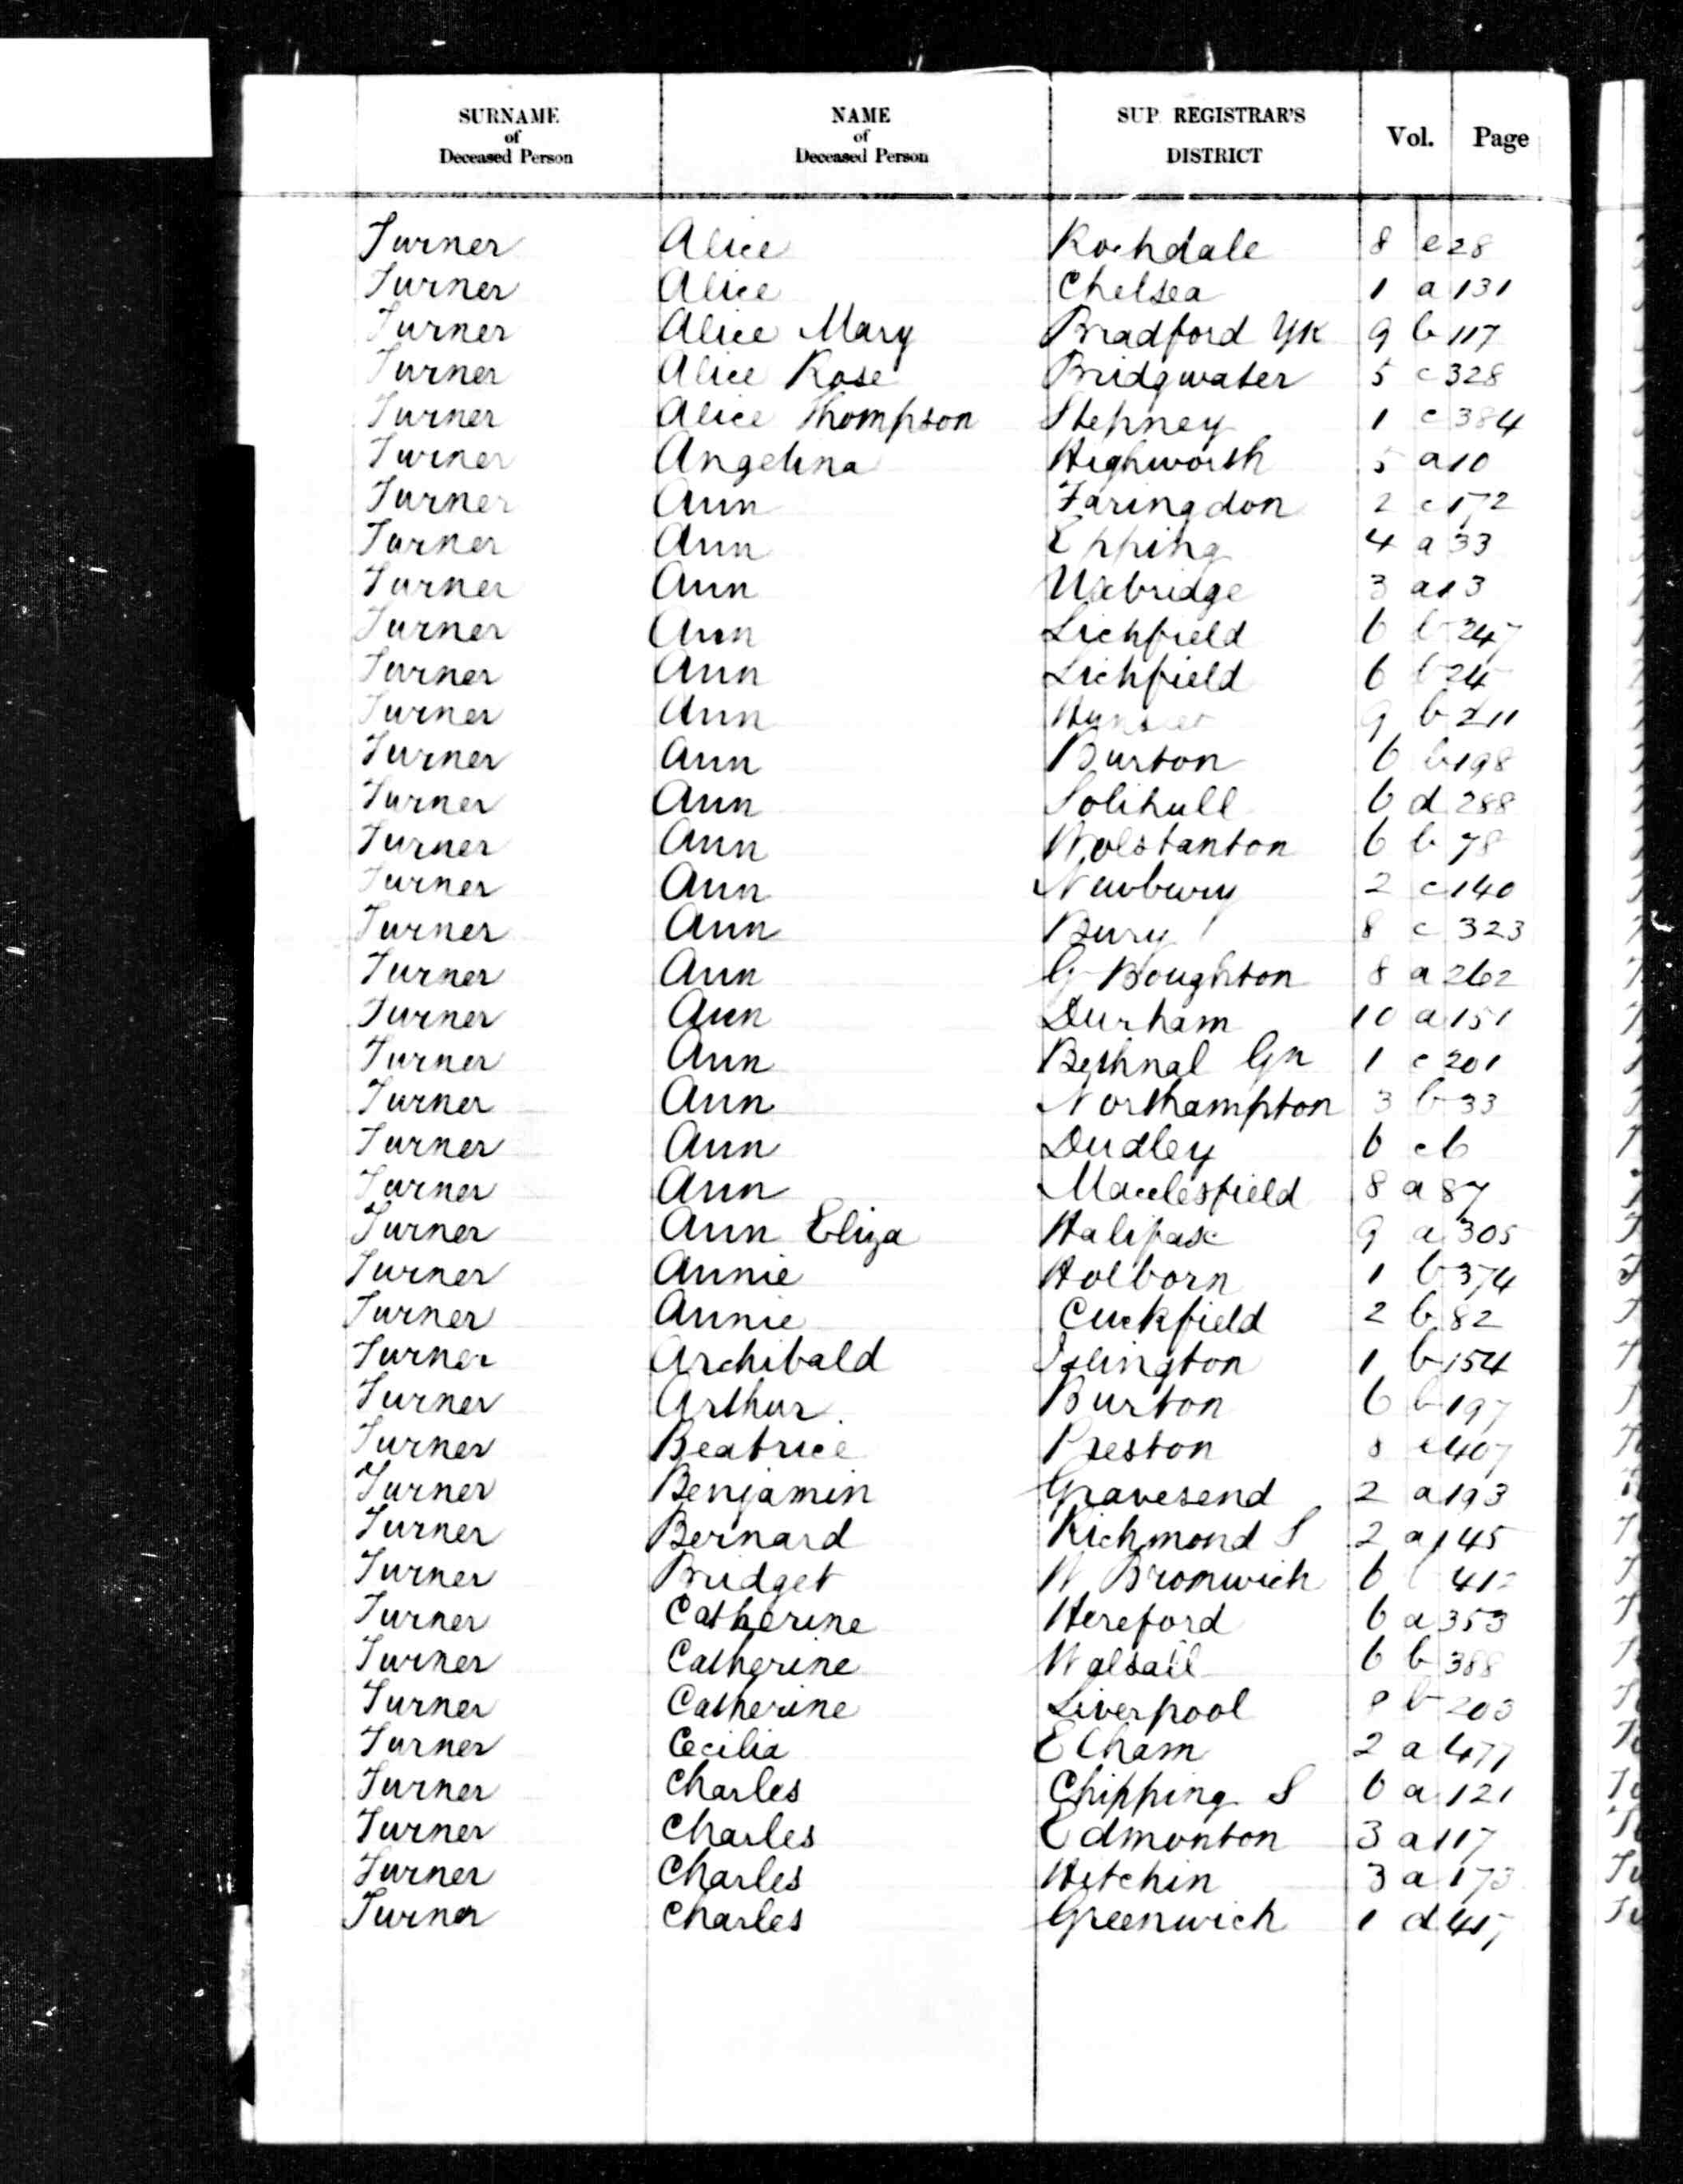 SURNAME of Deceased Person NAME of Deceased Person SUP. REGISTRAR'S DISTRICT Vol. Page
Turner Alice Rochdale 8 e 28
Turner Alice Chelsea 1 a 131
Turner Alice Mary Bradford Yk 9 b 117
Turner Alice Rose Bridgwater 5 c 328
Turner Alice Thompson Stepney 1 c 384
Turner Angelina Highworth 5 a 10
Turner Ann Faringdon 2 c 172
Turner Ann Epping 4 a 33
Turner Ann Uxbridge 3 a 13
Turner Ann Lichfield 6 b 247
Turner Ann Lichfield 6 b
Turner Ann Hunslet 9 b 211
Turner Ann Burton 6 b 198
Turner Ann Solihull 6 d 288
Turner Ann Wolstanton 6 b 78
Turner Ann Newbury 2 c 140
Turner Ann Bury 8 c 323
Turner Ann G Boughton 8 a 262
Turner Ann Durham 10 a 151
Turner Ann Bethnal Gn 1 c 201
Turner Ann Northampton 3 b 33
Turner Ann Dudley 6 c 6
Turner Ann Macclesfield 8 a 87
Turner Ann Eliza Halifax 9 a 305
Turner Annie Holborn 1 b 374
Turner Annie Cuckfield 2 b 82
Turner Archibald Islington 1 b 154
Turner Arthur Burton 6 b 197
Turner Beatrice Preston 8 e 407
Turner Benjamin Gravesend 2 a 193
Turner Bernard Richmond S 2 a 145
Turner Bridget W Bromwich 6
Turner Catherine Hereford 6 a 353
Turner Catherine Walsall 6 b 388
Turner Catherine Liverpool 8 b 203
Turner Cecilia Elham 2 a 477
Turner Charles Chipping S 6 a 121
Turner Charles Edmonton 3 a 117
Turner Charles Hitchin 3 a 173
Turner Charles Greenwich 1 d